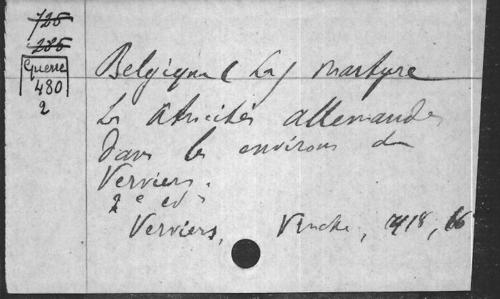 726
286
Guerre
480
2
Belgique (La) martyre
Les Atrocités allemandes
dans les environs de
Verviers.
2e ed
Verviers, Vinche, 1918, 16